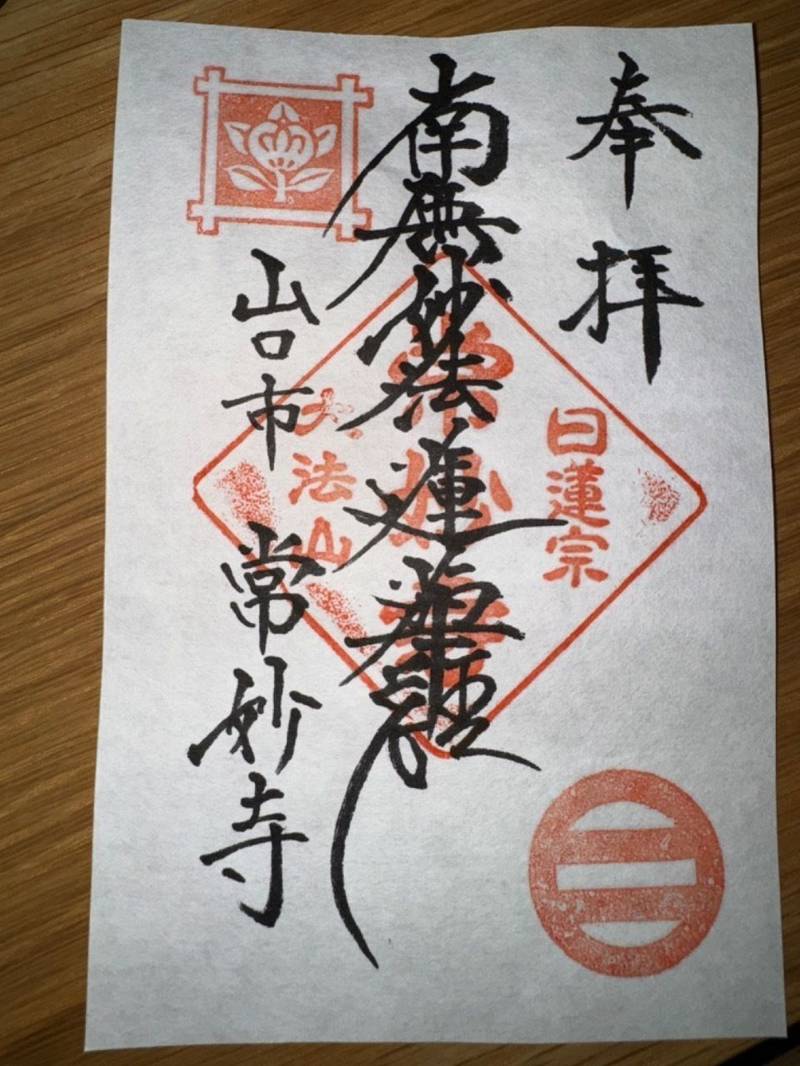 奉拝
日蓮宗
南無妙法蓮華経
常妙寺
法山
山口市 常妙寺